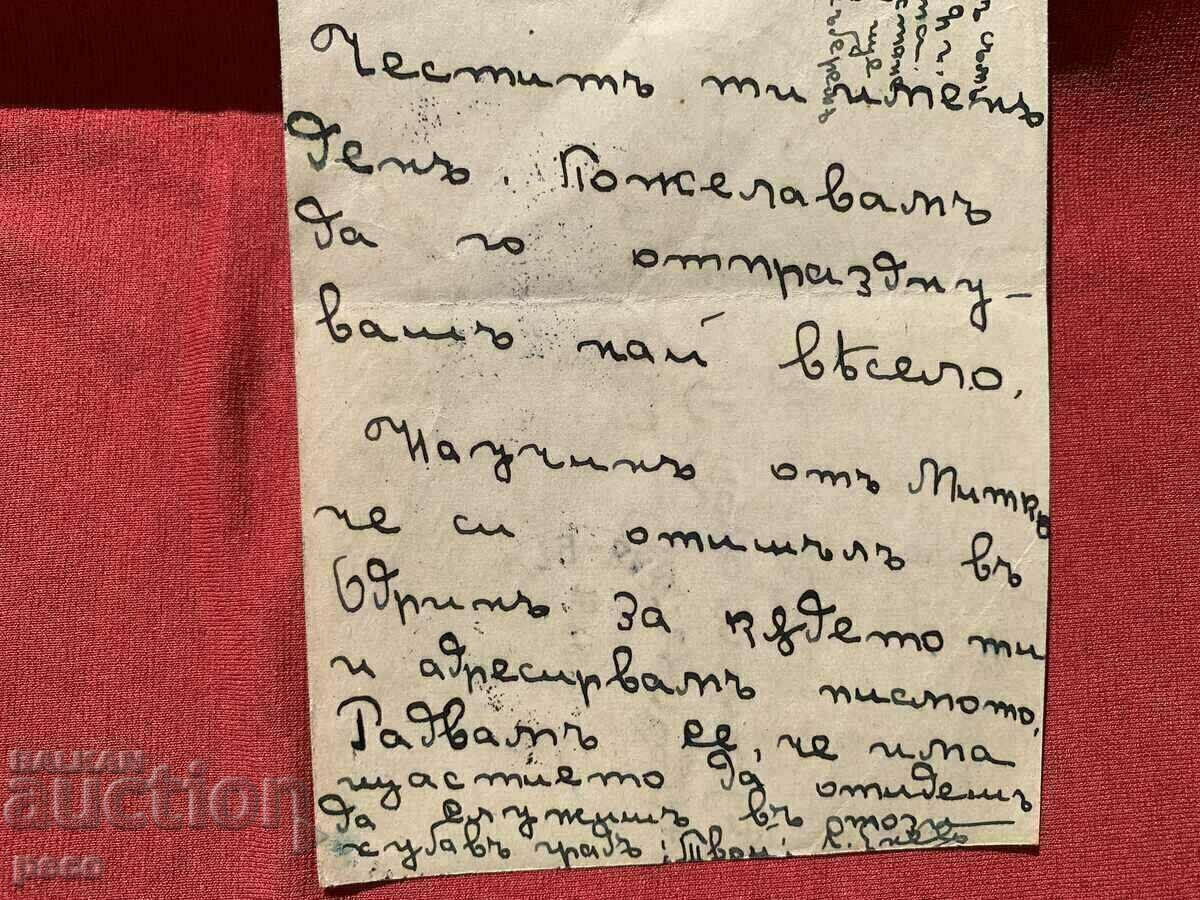 Честитъ ти именъ
день. Пожелавамъ
да го отпразну-
вашъ най вѣсело.
Научихъ отъ Митко
че си отишълъ въ
Одринъ за кѫдето ти
и адресирвамъ писмото,
Радвамъ се, че има
щастието да отидешъ
да служишъ въ този
хубавъ градъ. Твой:
ще
BALKAN
auction
peco